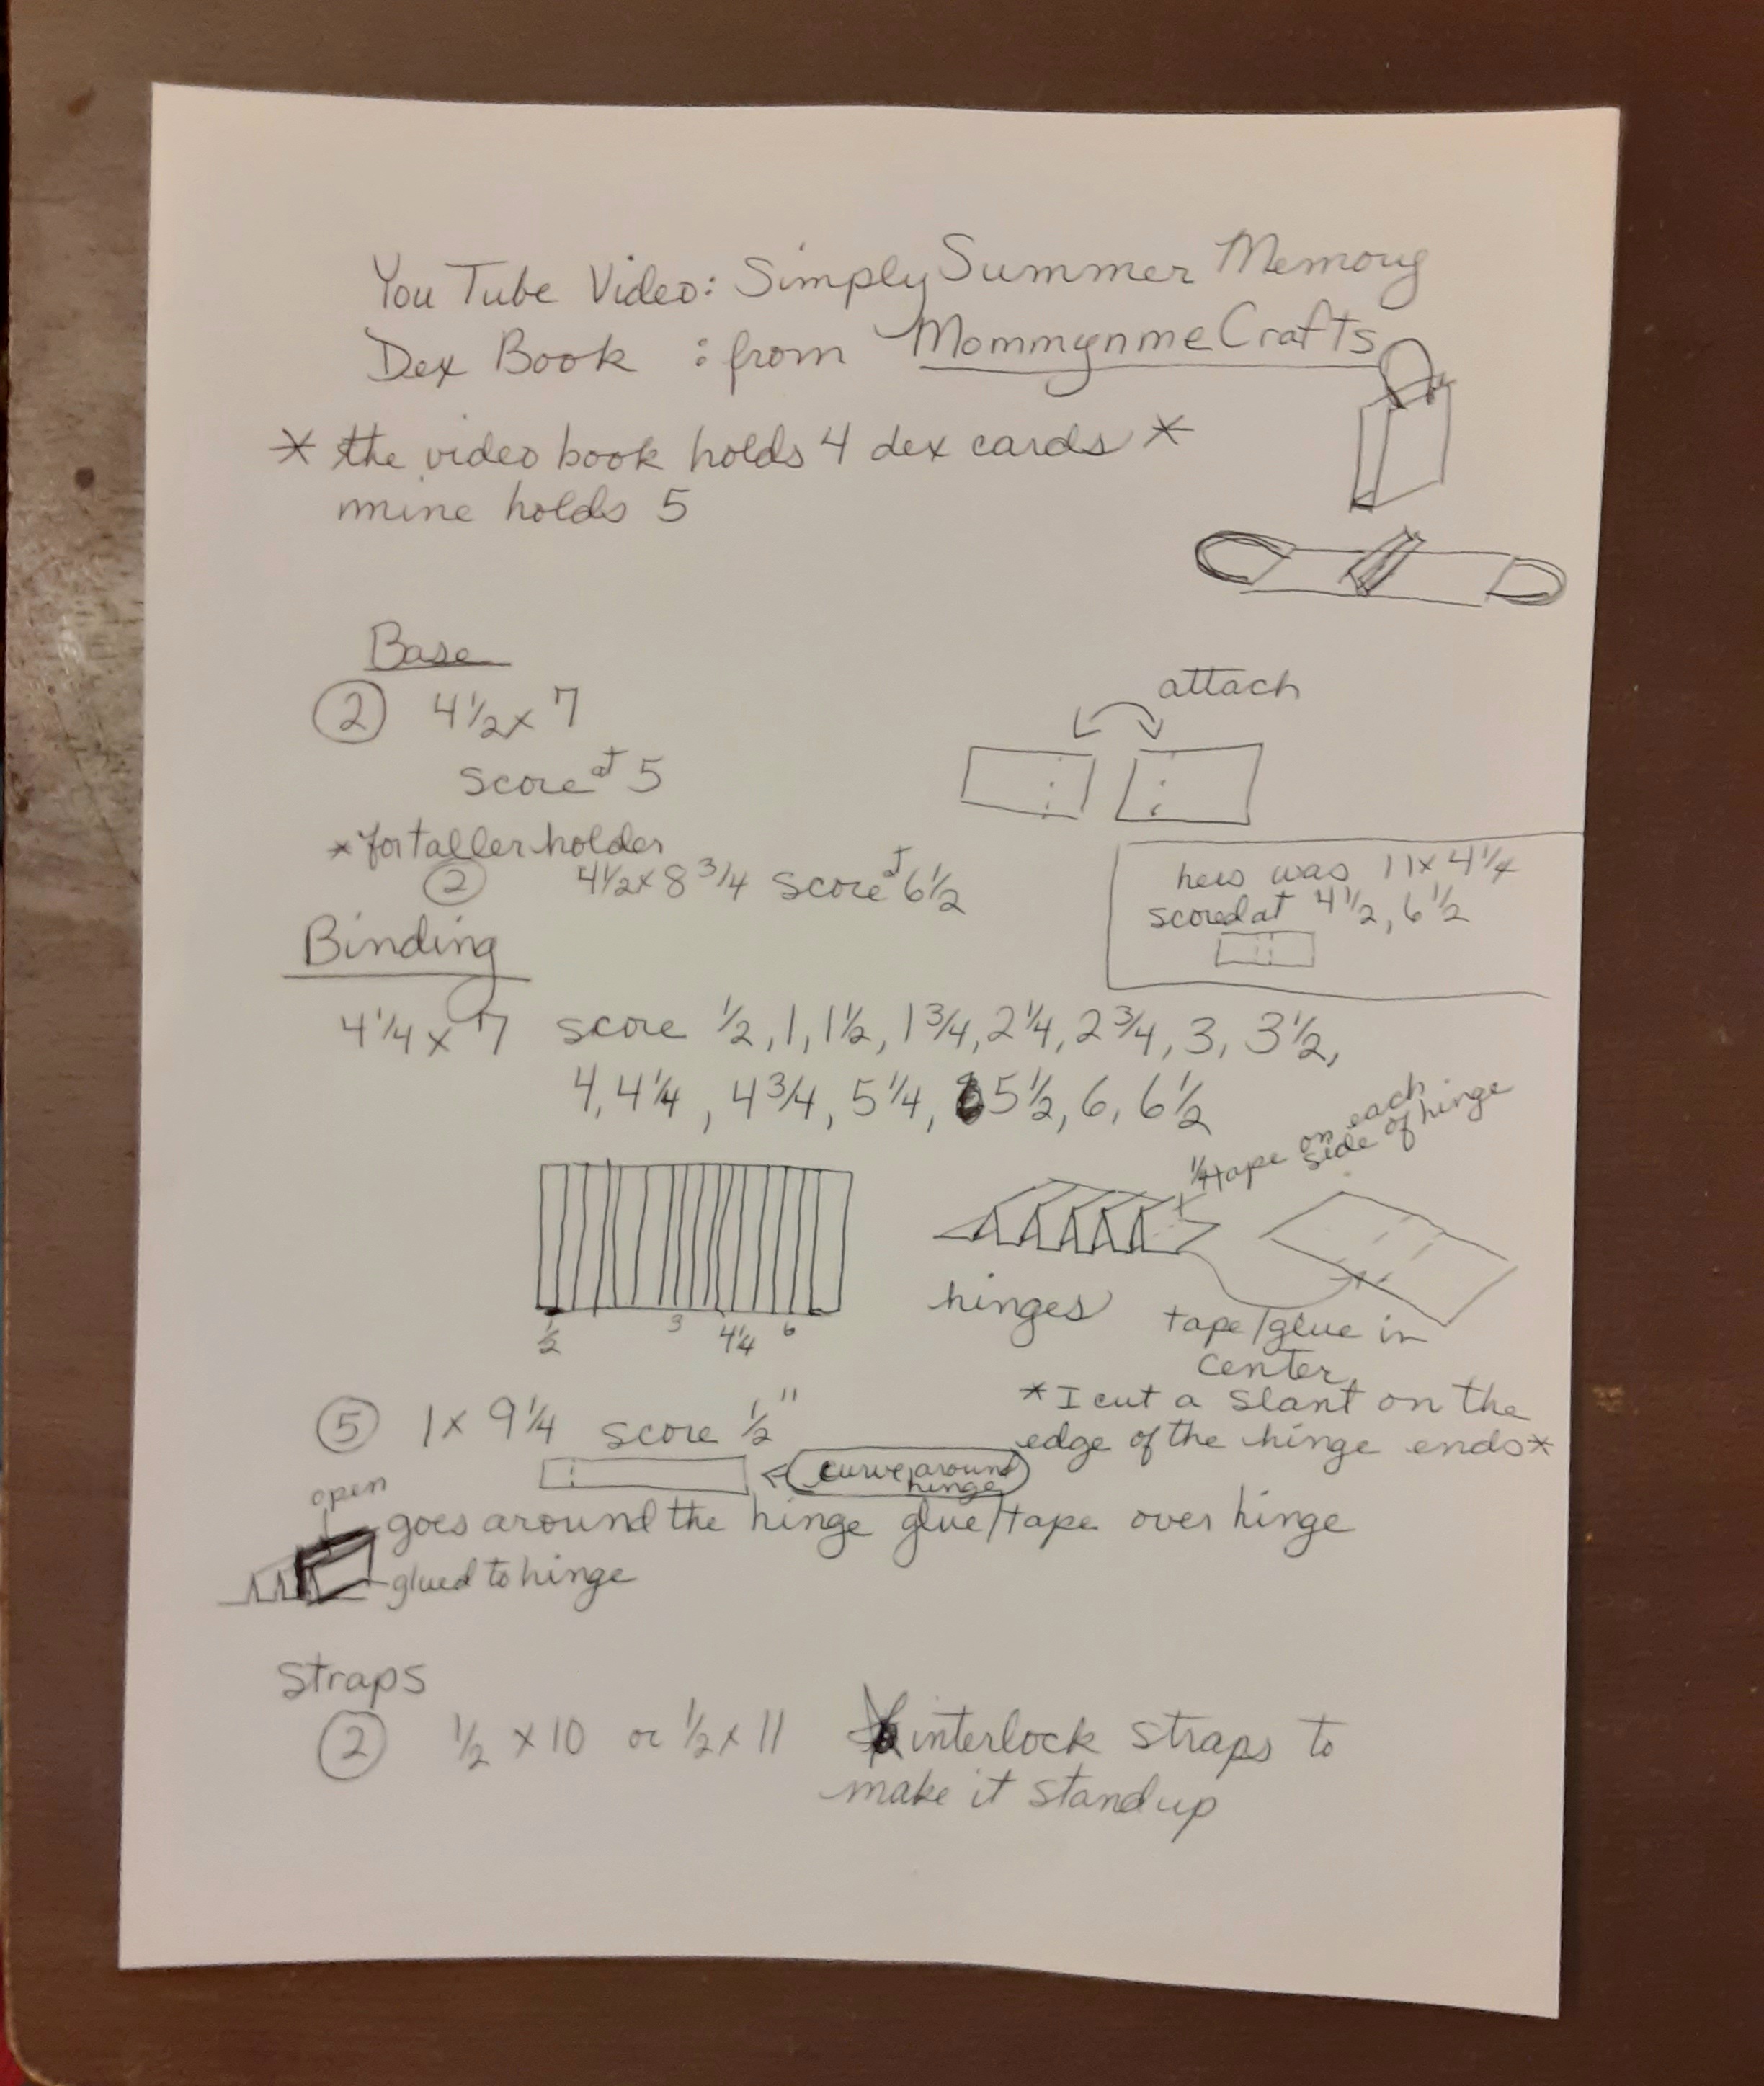 YouTube Video: Simply Summer Memory
Dex Book : from MommynmeCrafts
* the video book holds 4 dex cards *
mine holds 5
Base
② 4 1/2 x 7
score at 5
attach
* for taller holder
② 4 1/2 x 8 3/4 score at 6 1/2
hers was 11 x 4 1/4
scored at 4 1/2, 6 1/2
Binding
4 1/4 x 7 score 1/2, 1, 1 1/2, 1 3/4, 2 1/4, 2 3/4, 3, 3 1/2,
4, 4 1/4, 4 3/4, 5 1/4, 5 1/2, 6, 6 1/2
1/4 tape on each
side of hinge
1/2 3 4 1/4 6
hinges
tape/glue in
center
* I cut a slant on the
edge of the hinge ends *
⑤ 1 x 9 1/4 score 1/2"
curve around
hinge
open
goes around the hinge glue/tape over hinge
glued to hinge
Straps
② 1/2 x 10 or 1/2 x 11 interlock straps to
make it stand up